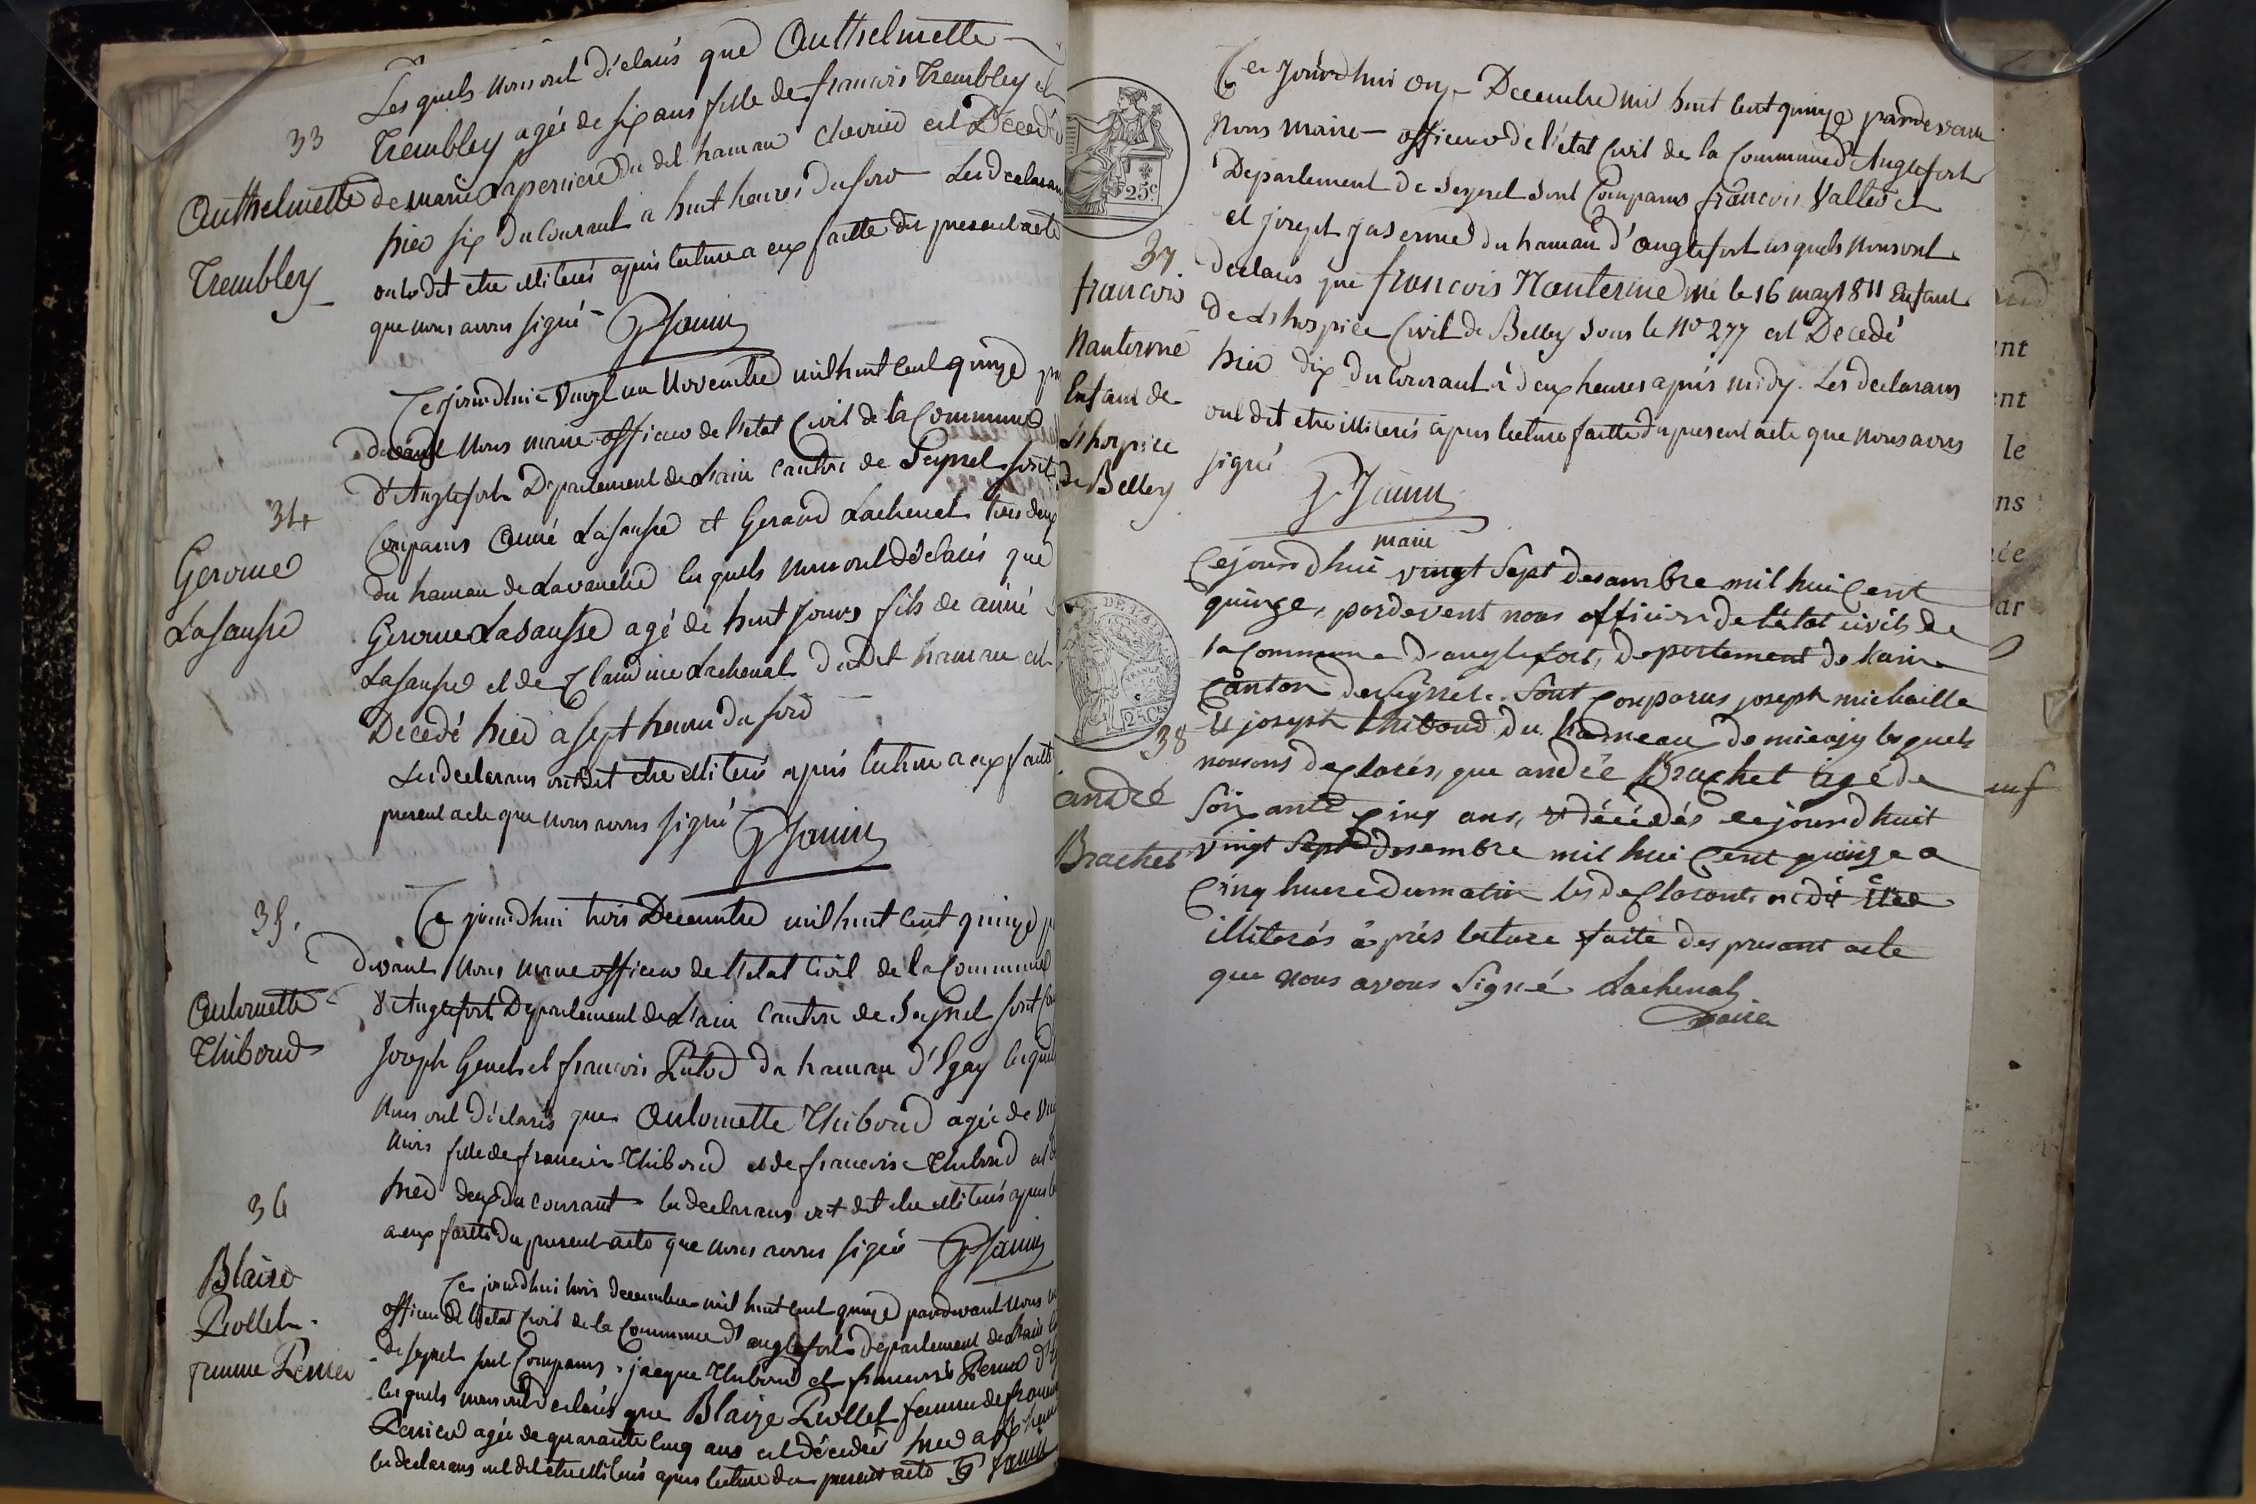 Les quels nous ont déclarés que Anthelmette
33
Trembley agée de six ans fille de francois Trembley et
Anthelmette
Trembley
de marie Laperriere du dit hamau chevrier est Decedé
hier six du Courant a huit heures du soir Les declarans
ont dit etre illiterés apres lecture a eux faitte du present acte
que nous avons signé
Cejourdhui vingt un Novembre mil huit Cent quinze
devant nous maire officier de l'etat Civil de la Commune
d'Anglefort Departement de L'ain canton de Seyssel sont
34
Gerome
Lasausse
Comparus Aimé Lasausse et Gerard Lachenal tous deux
du hamau de Lavanche les quels nous ont déclarés que
Gerome Lasausse agé de huit Jours fils de aimé
Lasausse et de Claudine Lachenal du dit hamau est
Decedé hier a sept heures du soir
Les declarans ont dit etre illiterés apres lecture a eux faitte
present acte que nous avons signé
Ce jourdhui trois Decembre mil huit Cent quinze
35.
devant Nous maire officier de l'etat Civil de la Commune
Antoinette
Thiboud
d'Anglefort Departement de L'ain Canton de Seyssel sont
Joseph et francois du hamau d' les quels
Nous ont déclarés que Antoinette Thiboud agée de
mois fille de francois Thiboud et de francoise Thiboud est
hier deux du courant les declarans ont dit etre illiterés apres
a eux faitte du present acte que nous avons signé
36
Blaise
femme Perrier
Ce jourdhui trois decembre mil huit Cent quinze pardevant Nous
officier de l'etat Civil de la Commune d'anglefort departement de L'ain
de Seyssel sont Comparus jacque Thiboud et francois
les quels nous ont declarés que Blaize femme de francois
Perrier agée de quarante cinq ans est décedée hier a
les declarans ont dit etre illiterés apres lecture du present acte
25c
Ce jourdhui onze Decembre mil huit Cent quinze pardevant
Nous maire officier de l'état Civil de la Commune d'Anglefort
Departement de Seyssel sont Comparus francois Vallet
et joseph du hamau d'anglefort les quels Nous ont
37
francois
Nanterme
Enfant de
L'hospice
de Belley
declarés que francois Nanterme né le 16 may 1811 Enfant
de L'hospice Civil de Belley sous le No 277 est Decedé
hier dix du Courant à deux heures après midy. Les declarans
ont dit etre illiterés apres lecture faitte du present acte que nous avons
signé
maire
Cejourdhui vingt Sept desambre mil hui Cent
quinze, pardevent nous officier de l'état civils de
la Commune d'anglefort, departement de Lain
Canton de Seyssel. Sont Conparus joseph michaille
25C
et joseph thiboud du hameau de les quels
38
andré
Brachet
nousons declarés, que andrée Brachet agé de
Soixante cinq ans, et décédés cejourdhuit
vingt Sept desembre mil hui Cent quinze a
Cinq huere dumatin les declarant on dit Etre
illiterés après lecture faite des presant acte
que nous avons Signé Lachenal
maire